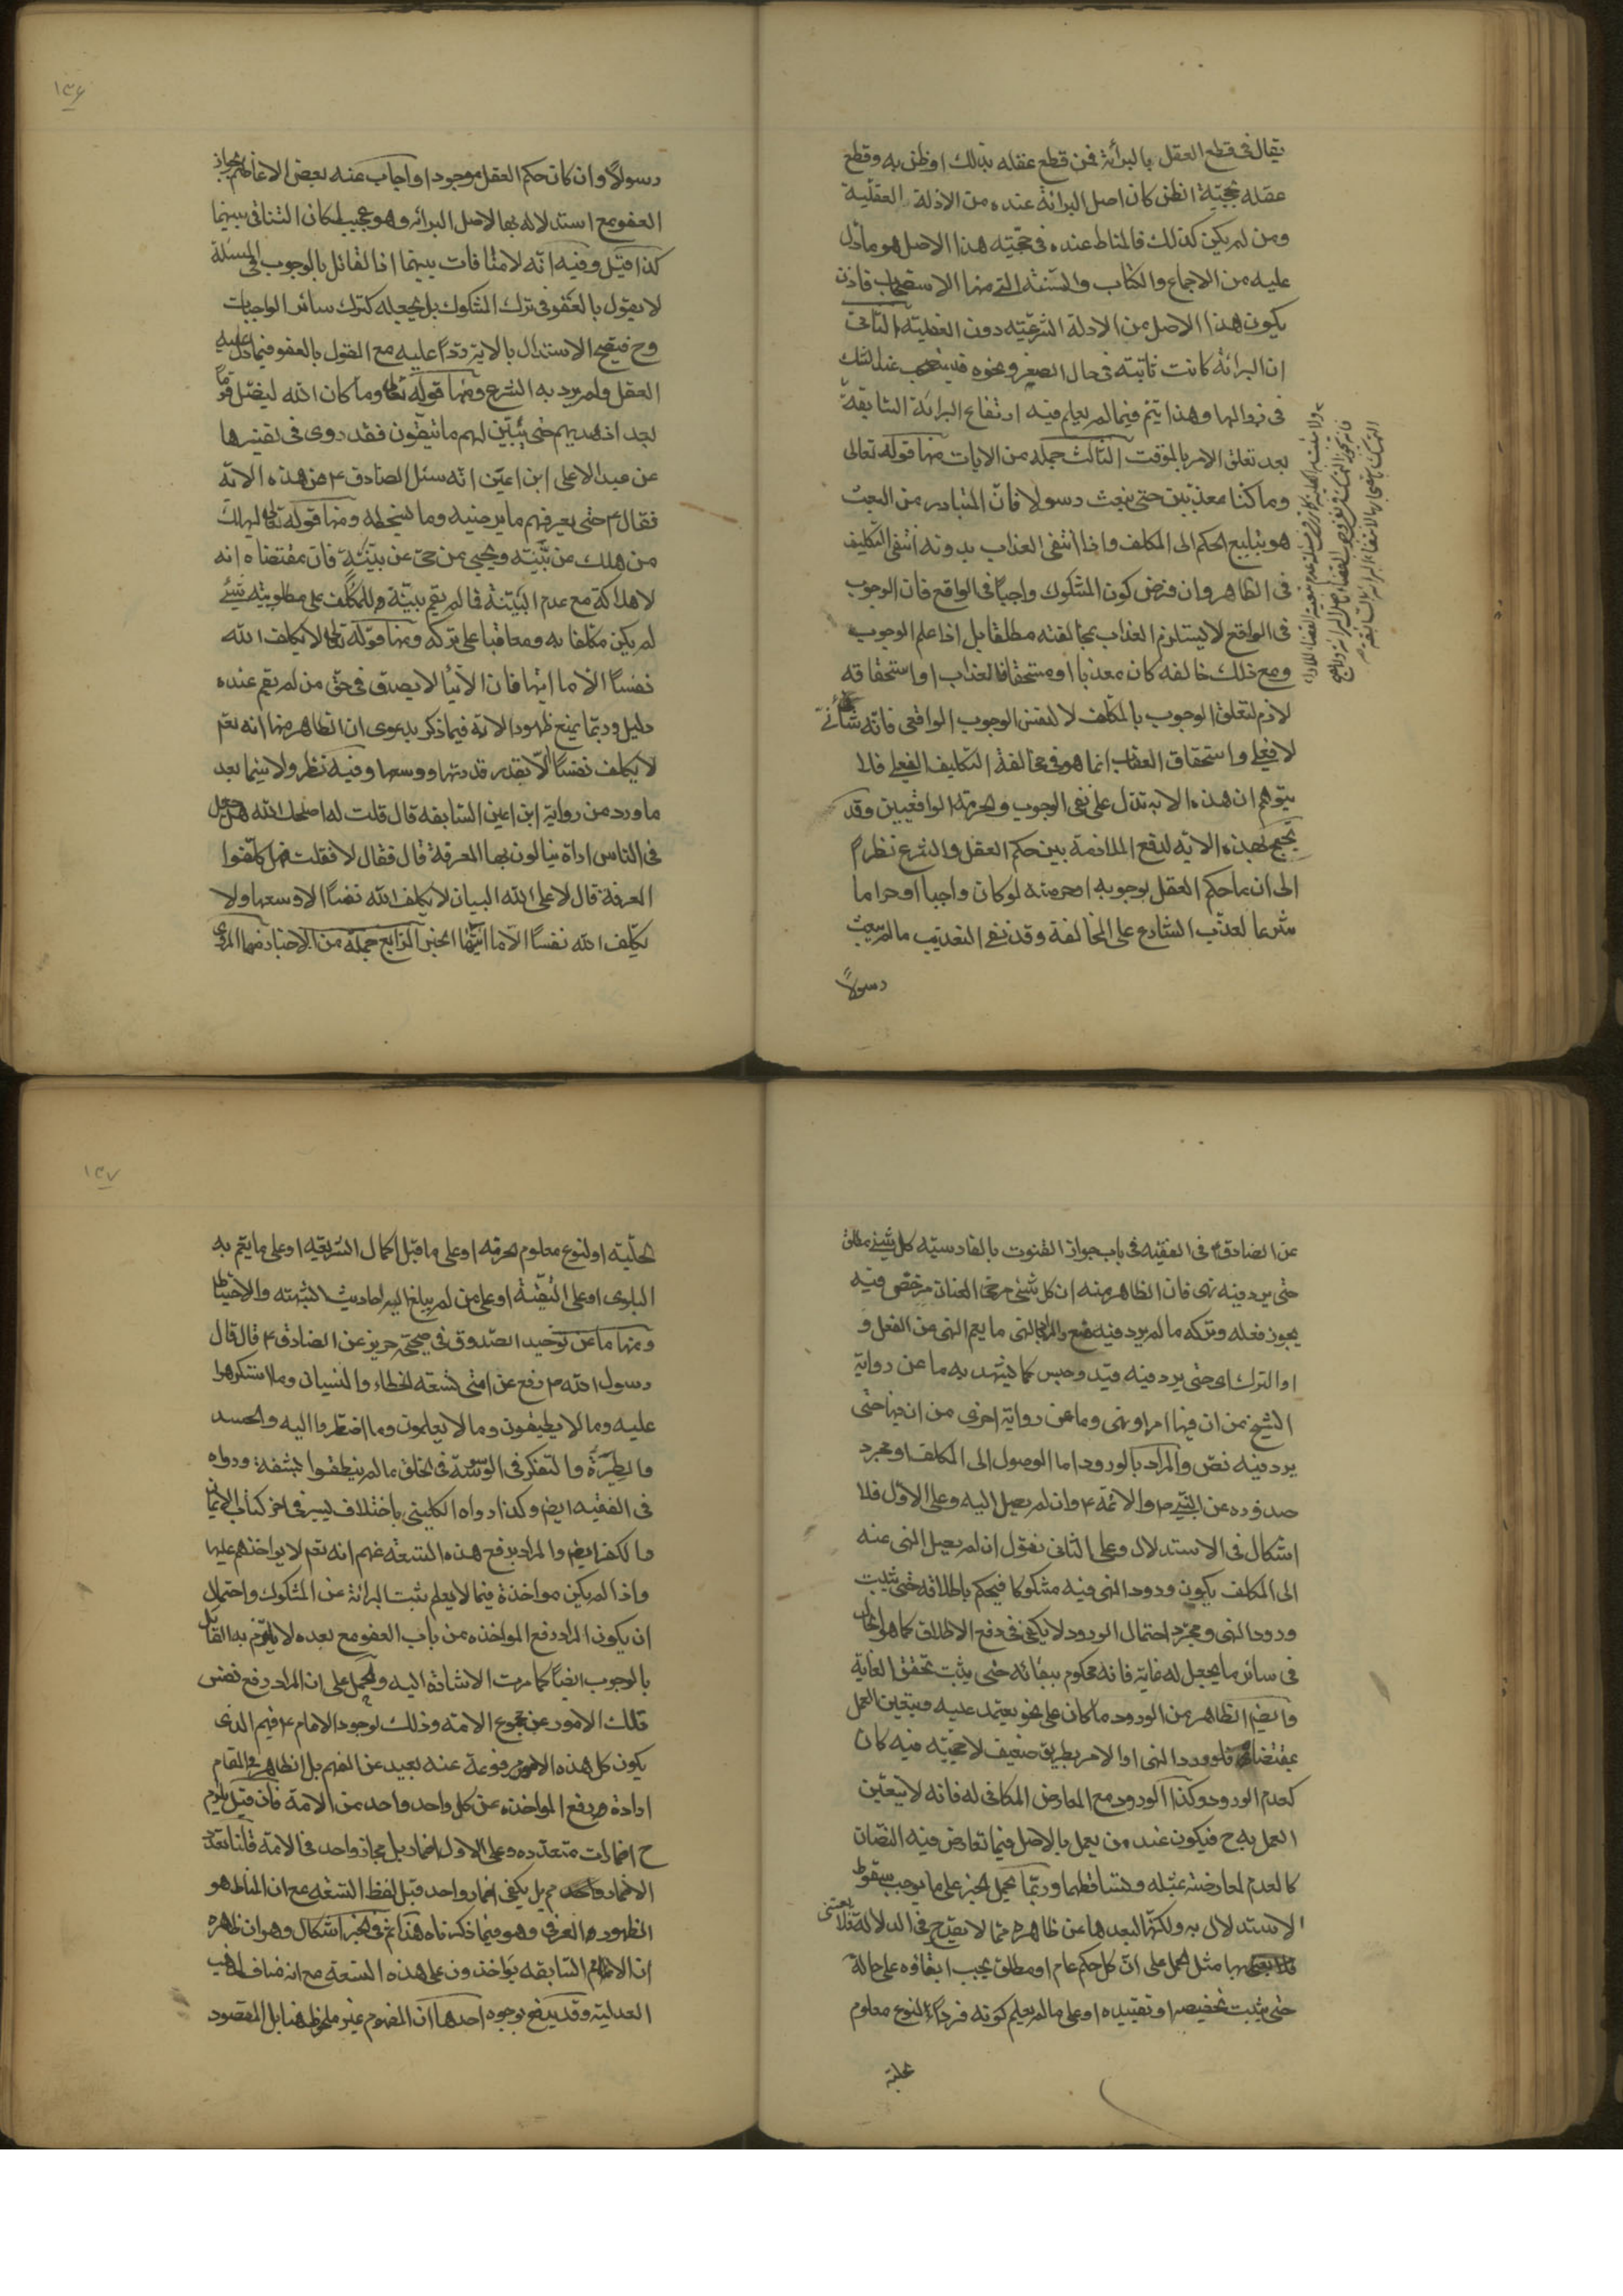 يقال فى قطع العقل بالبرائة فمن قطع عقله بذلك او ظن به وقطع
عقله بحجيّة الظن كان اصل البرائة عنده من الادلة العقليّة
ومن لم يكن كذلك فالمناط عنده فى حجيّته هذا الاصل هو ما دلّ
عليه من الاجماع والكتاب والسّنة التى منها الاستصحاب فاذن
يكون هذا الاصل من الادلة الشرعيّته دون العقليّه الثانى
ان البرائة كانت ثابتة فى حال الصغر ونحوه فيستصحب عند الشك
فى زوالها وهذا يتم فيما لم يعلم فيه ارتفاع البرائة السّابقة
بعد تعلق الامر بالموقت الثالث جملة من الايات منها قوله تعالى
وما كنا معذبين حتى نبعث رسولا فانّ المتبادر من البعث
هو تبليغ الحكم الى المكلف واذا انتفى العذاب بدونه انتفى التكليف
فى الظاهر وان فرض كون المشكوك واجبًا فى الواقع فان الوجوب
فى الواقع لا يستلزم العذاب بمخالفته مطلقا بل اذا علم الوجوب
ومع ذلك خالفه كان معذبا او مستحقا للعذاب واستحقاقه
لازم لتعلق الوجوب بالمكلف لا لنفس الوجوب الواقعى فانه شأنىّ
لا فعلى واستحقاق العقاب انما هو فى مخالفة التكاليف الفعلى فلا
يتوهم ان هذه الايه تدل على نفى الوجوب والحرمة الواقعيين وقد
يحتج بهذه الايه لدفع الملازمة بين حكم العقل والشرع نظرا
الى ان ما حكم العقل بوجوبه او حرمته لو كان واجبا او حراما
شرعا لعذّب الشارع على المخالفة وقد نفى التعذيب ما لم يبعث
رسولاً
رسولاً وان كان حكم العقل موجودا واجاب عنه بعض الاعاظم بجواز
العفو مع استدلاله بها لاصل البرائه وهو عجيب لمكان التنافى بينهما
كذا قيل وفيه انّه لا منافات بينهما اذ القائل بالوجوب فى المسئلة
لا يقول بالعفو فى ترك المشكوك بل يجعله كترك سائر الواجبات
وح فيصح الاستدلال بالاية ردّا عليه مع القول بالعفو فيما دل عليه
العقل ولم يرد به الشرع ومنها قوله تعالى وما كان الله ليضل قومًا
بعد اذ هديهم حتى يبيّن لهم ما يتقون فقد روى فى تفسيرها
عن عبد الاعلى ابن اعين انه سئل الصادق ع عن هذه الاية
فقال ع حتى يعرفهم ما يرضيه وما يسخطه ومنها قوله تعالى ليهلك
من هلك عن بيّنة ويحيى من حىّ عن بيّنة فان مقتضاه انه
لا هلاكة مع عدم البيّنة فما لم يقم بيّنة للمكلف على مطلوبيّة شئ
لم يكن مكلفا به ومعاقبا على تركه ومنها قوله تعالى لا يكلف الله
نفسًا الا ما اتيها فان الايتاء لا يصدق فى حق من لم يقم عنده
دليل وربما يمنع ظهور الاية فيما ذكر بدعوى ان الظاهر منها انه تعم
لا يكلف نفسًا الّا بقدر قدرتها ووسعها وفيه نظر ولا سيّما بعد
ما ورد من رواية ابن اعين السّابقه قال قلت له اصلحك الله هل جعل
فى الناس اداة ينالون بها المعرفة قال فقال لا فقلت فهل كلّفوا
المعرفة قال لا على الله البيان لا يكلف الله نفسًا الا وسعها ولا
يكلّف الله نفسًا الّا ما اتيها الخبر الرّابع جملة من الاخبار منها المروى
عن الصادق ع فى الفقيه فى باب جواز القنوت بالفارسيّه كل شئ مطلق
حتى يرد فيه نهى فان الظاهر منه ان كل شئ مرخى العنان مرخص فيه
يجوز فعله وتركه ما لم يرد فيه منع والمراد بالنهى ما يعم النهى عن الفعل و
او الترك اى حتى يرد فيه قيد وحبس كما يشهد به ما عن رواية
الشيخ من ان فيها امر او نهى وما عن رواية اخرى من ان فيها حتى
يرد فيه نصّ والمراد بالورود اما الوصول الى المكلف او مجرد
صدوره عن النبى ص والائمة ع وان لم يصل اليه وعلى الاول فلا
اشكال فى الاستدلال وعلى الثانى نقول ان لم يصل النهى عنه
الى المكلف يكون ورود النهى فيه مشكوكا فيحكم باطلاقه حتى يثبت
ورود النهى ومجرّد احتمال الورود لا يكفى فى دفع الاطلاق كما هو الحال
فى سائر ما يجعل له غاية فانه محكوم ببقائه حتى يثبت تحقق الغاية
وايضا الظاهر من الورود ما كان على نحو يعتمد عليه ويتعين العمل
بمقتضاه فلو ورد النهى او الامر بطريق ضعيف لا حجيّه فيه كان
كعدم الورود وكذا الورود مع المعارض المكافى له فانه لا يتعيّن
العمل به ح فيكون عند من يعمل بالاصل فيما تعارض فيه النصّان
كالعدم لمعارضته بمثله وتساقطهما وربّما يحمل الخبر على ما يوجب سقوط
الاستدلال به ولكنّها لبعدها عن ظاهره ممّا لا يقدح فى الدلالة فلا يعتنى
بها مثل الحمل على انّ كل حكم عام او مطلق يجب ابقاؤه على حالة
حتى يثبت تخصيصه او تقييده او على ما لم يعلم كونه فردًا لنوع معلوم
الحليّة او لنوع معلوم الحرمة او على ما قبل اكمال الشريعة او على ما يعم به
البلوى او على التّقيّة او على من لم يبلغ اليه احاديث الشبهة والاحتياط
ومنها ما عن توحيد الصّدوق فى صحيحة حريز عن الصادق ع قال قال
رسول الله ص رفع عن امتى تسعة الخطاء والنسيان وما استكرهوا
عليه وما لا يطيقون وما لا يعلمون وما اضطروا اليه والحسد
والطيرة والتفكر فى الوسوسة فى الخلق ما لم ينطقوا بشفة ورواه
فى الفقيه ايضا وكذا رواه الكلينى باختلاف يسير فى اخر كتاب الايمان
والكفر ايضا والمراد برفع هذه التسعة عنهم انه تعم لا يواخذهم عليها
واذا لم يكن مواخذة فيما لا يعلم يثبت البرائة عن المشكوك واحتمال
ان يكون المراد رفع المواخذه من باب العفو مع بعده لا يلتزم به القائل
بالوجوب ايضًا كما مرت الاشارة اليه والحمل على ان المراد رفع نفس
تلك الامور عن مجموع الامة وذلك لوجود الامام ع فيهم الذى
يكون كل هذه الامور مرفوعة عنه بعيد عن الفهم بل الظاهر فى المقام
ارادة رفع المواخذه عن كل واحد واحد من الامة فان قيل يلزم
ح اضمارات متعدده وعلى الاول اضمار بل مجاز واحد فى الامة قلنا تعدد
الاضمار مم بل يكفى اضمار واحد قبل لفظ التسعه مع ان المناط هو
الظهور العرفى وهو فيما ذكرناه هذا ثم فى الخبر اشكال وهو ان ظاهره
ان الامم السّابقه يؤاخذون على هذه التسعة مع انه مناف لمذهب
العدلية وقد يدفع بوجوه احدها ان المفهوم غير ملحوظ هنا بل المقصود